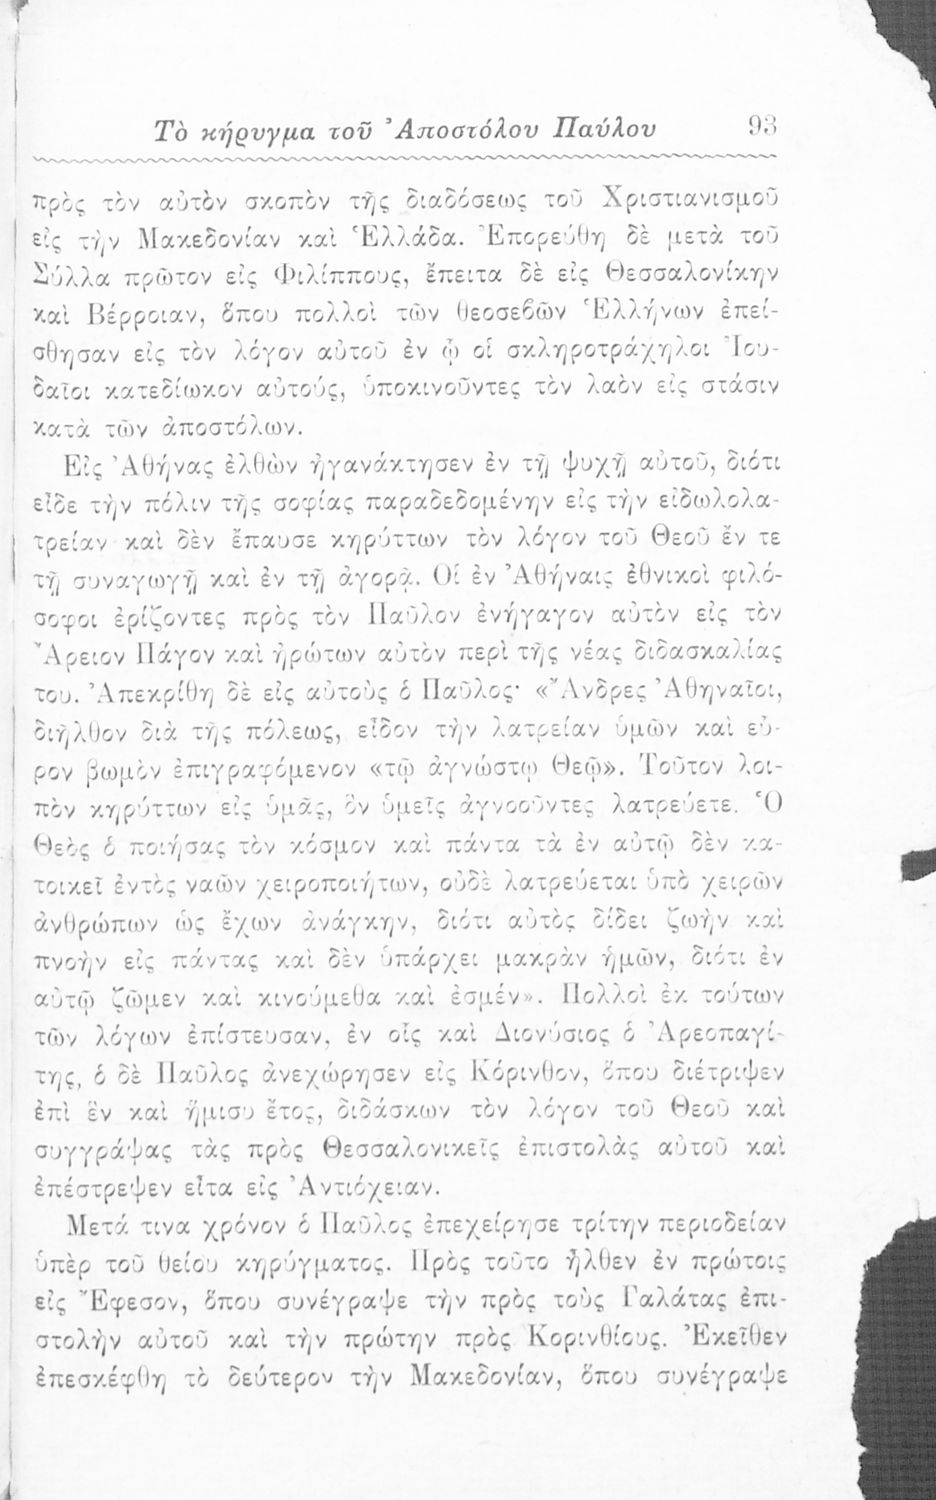 Τὸ κήρυγμα τοῦ Ἀποστόλου Παύλου 93
πρὸς τὸν αὐτὸν σκοπὸν τῆς διαδόσεως τοῦ Χριστιανισμοῦ
εἰς τὴν Μακεδονίαν καὶ Ἑλλάδα. Ἐπορεύθη δὲ μετὰ τοῦ
Σύλλα πρῶτον εἰς Φιλίππους, ἔπειτα δὲ εἰς Θεσσαλονίκην
καὶ Βέρροιαν, ὅπου πολλοὶ τῶν θεοσεβῶν Ἑλλήνων ἐπεί-
σθησαν εἰς τὸν λόγον αὐτοῦ ἐν ᾧ οἱ σκληροτράχηλοι Ἰου-
δαῖοι κατεδίωκον αὐτούς, ὑποκινοῦντες τὸν λαὸν εἰς στάσιν
κατὰ τῶν ἀποστόλων.
Εἰς Ἀθήνας ἐλθὼν ἠγανάκτησεν ἐν τῇ ψυχῇ αὐτοῦ, διότι
εἶδε τὴν πόλιν τῆς σοφίας παραδεδομένην εἰς τὴν εἰδωλολα-
τρείαν καὶ δὲν ἔπαυσε κηρύττων τὸν λόγον τοῦ Θεοῦ ἔν τε
τῇ συναγωγῇ καὶ ἐν τῇ ἀγορᾷ. Οἱ ἐν Ἀθήναις ἐθνικοὶ φιλό-
σοφοι ἐρίζοντες πρὸς τὸν Παῦλον ἐνήγαγον αὐτὸν εἰς τὸν
Ἄρειον Πάγον καὶ ἠρώτων αὐτὸν περὶ τῆς νέας διδασκαλίας
του. Ἀπεκρίθη δὲ εἰς αὐτοὺς ὁ Παῦλος· «Ἄνδρες Ἀθηναῖοι,
διῆλθον διὰ τῆς πόλεως, εἶδον τὴν λατρείαν ὑμῶν καὶ εὗ-
ρον βωμὸν ἐπιγραφόμενον «τῷ ἀγνώστῳ Θεῷ». Τοῦτον λοι-
πὸν κηρύττων εἰς ὑμᾶς, ὃν ὑμεῖς ἀγνοοῦντες λατρεύετε. Ὁ
Θεὸς ὁ ποιήσας τὸν κόσμον καὶ πάντα τὰ ἐν αὐτῷ δὲν κα-
τοικεῖ ἐντὸς ναῶν χειροποιήτων, οὐδὲ λατρεύεται ὑπὸ χειρῶν
ἀνθρώπων ὡς ἔχων ἀνάγκην, διότι αὐτὸς δίδει ζωὴν καὶ
πνοὴν εἰς πάντας καὶ δὲν ὑπάρχει μακρὰν ἡμῶν, διότι ἐν
αὐτῷ ζῶμεν καὶ κινούμεθα καὶ ἐσμέν». Πολλοὶ ἐκ τούτων
τῶν λόγων ἐπίστευσαν, ἐν οἷς καὶ Διονύσιος ὁ Ἀρεοπαγί-
της, ὁ δὲ Παῦλος ἀνεχώρησεν εἰς Κόρινθον, ὅπου διέτριψεν
ἐπὶ ἓν καὶ ἥμισυ ἔτος, διδάσκων τὸν λόγον τοῦ Θεοῦ καὶ
συγγράψας τὰς πρὸς Θεσσαλονικεῖς ἐπιστολὰς αὐτοῦ καὶ
ἐπέστρεψεν εἶτα εἰς Ἀντιόχειαν.
Μετά τινα χρόνον ὁ Παῦλος ἐπεχείρησε τρίτην περιοδείαν
ὑπὲρ τοῦ θείου κηρύγματος. Πρὸς τοῦτο ἦλθεν ἐν πρώτοις
εἰς Ἔφεσον, ὅπου συνέγραψε τὴν πρὸς τοὺς Γαλάτας ἐπι-
στολὴν αὐτοῦ καὶ τὴν πρώτην πρὸς Κορινθίους. Ἐκεῖθεν
ἐπεσκέφθη τὸ δεύτερον τὴν Μακεδονίαν, ὅπου συνέγραψε